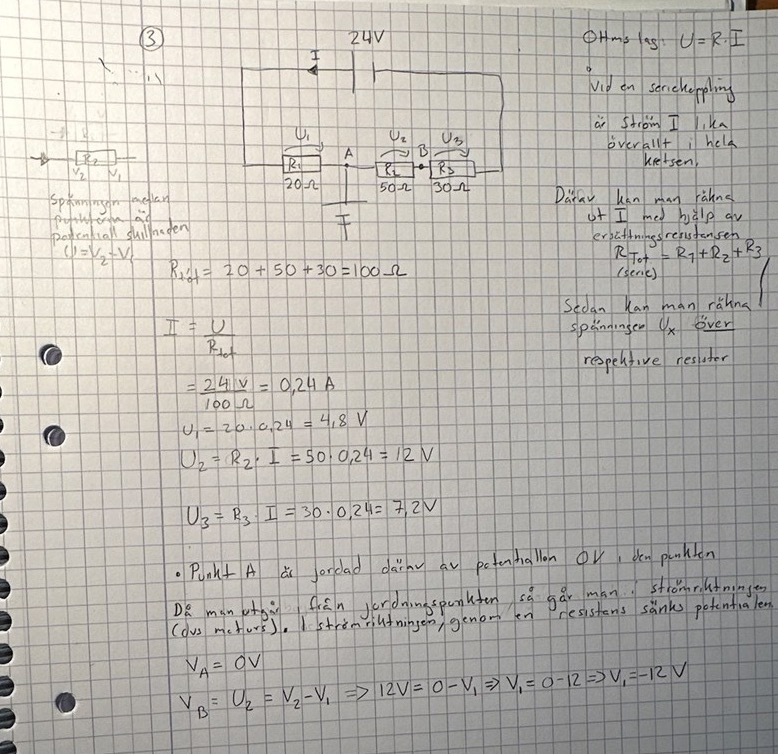 3
24V
I
U₁
A
U₂
B
U₃
R₁
R₂
R₃
20Ω
50Ω
30Ω
R₂
V₂ V₁
Spänningen mellan
punkterna är
potential skillnaden
U = V₂ - V₁
OHms lag: U = R · I
Vid en seriekoppling
är Ström I lika
överallt i hela
kretsen.
Därav kan man räkna
ut I med hjälp av
ersättningsresistansen
R_Tot = R₁ + R₂ + R₃
(serie)
Sedan kan man räkna
spänningen Uₓ över
respektive resistor
R_tot = 20 + 50 + 30 = 100 Ω
I = U / R_tot
= 24 V / 100 Ω = 0,24 A
U₁ = 20 · 0,24 = 4,8 V
U₂ = R₂ · I = 50 · 0,24 = 12 V
U₃ = R₃ · I = 30 · 0,24 = 7,2V
• Punkt A är jordad därav av potentiallen 0V i den punkten
Då man utgår från jordningspunkten, så går man i strömriktningen
(dvs moturs). I strömriktningen, genom en resistans sänks potentialen
V_A = 0V
V_B = U₂ = V₂ - V₁ => 12V = 0 - V₁ => V₁ = 0 - 12 => V₁ = -12 V